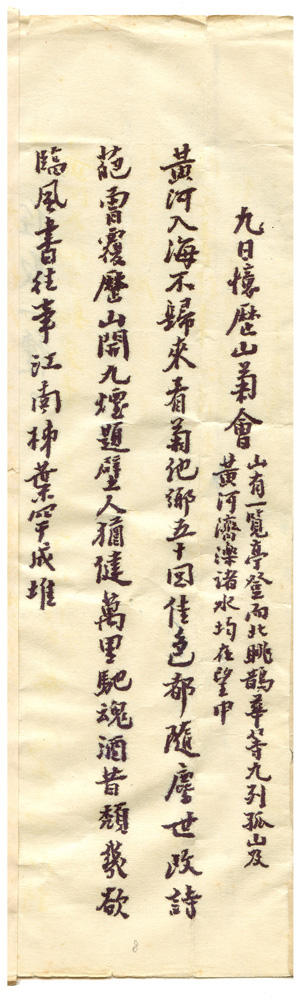 九日懷歷山菊會
山有一覽亭登而北眺鵲華等九列孤山及
黃河濟濼諸水均在望中
黃河入海不歸來看菊他鄉五十回佳色都隨塵世改詩
葩覆歷山開九煙題壁人猶健萬里馳魂酒昔頹幾欲
臨風書往事江南柿葉罕成堆
8